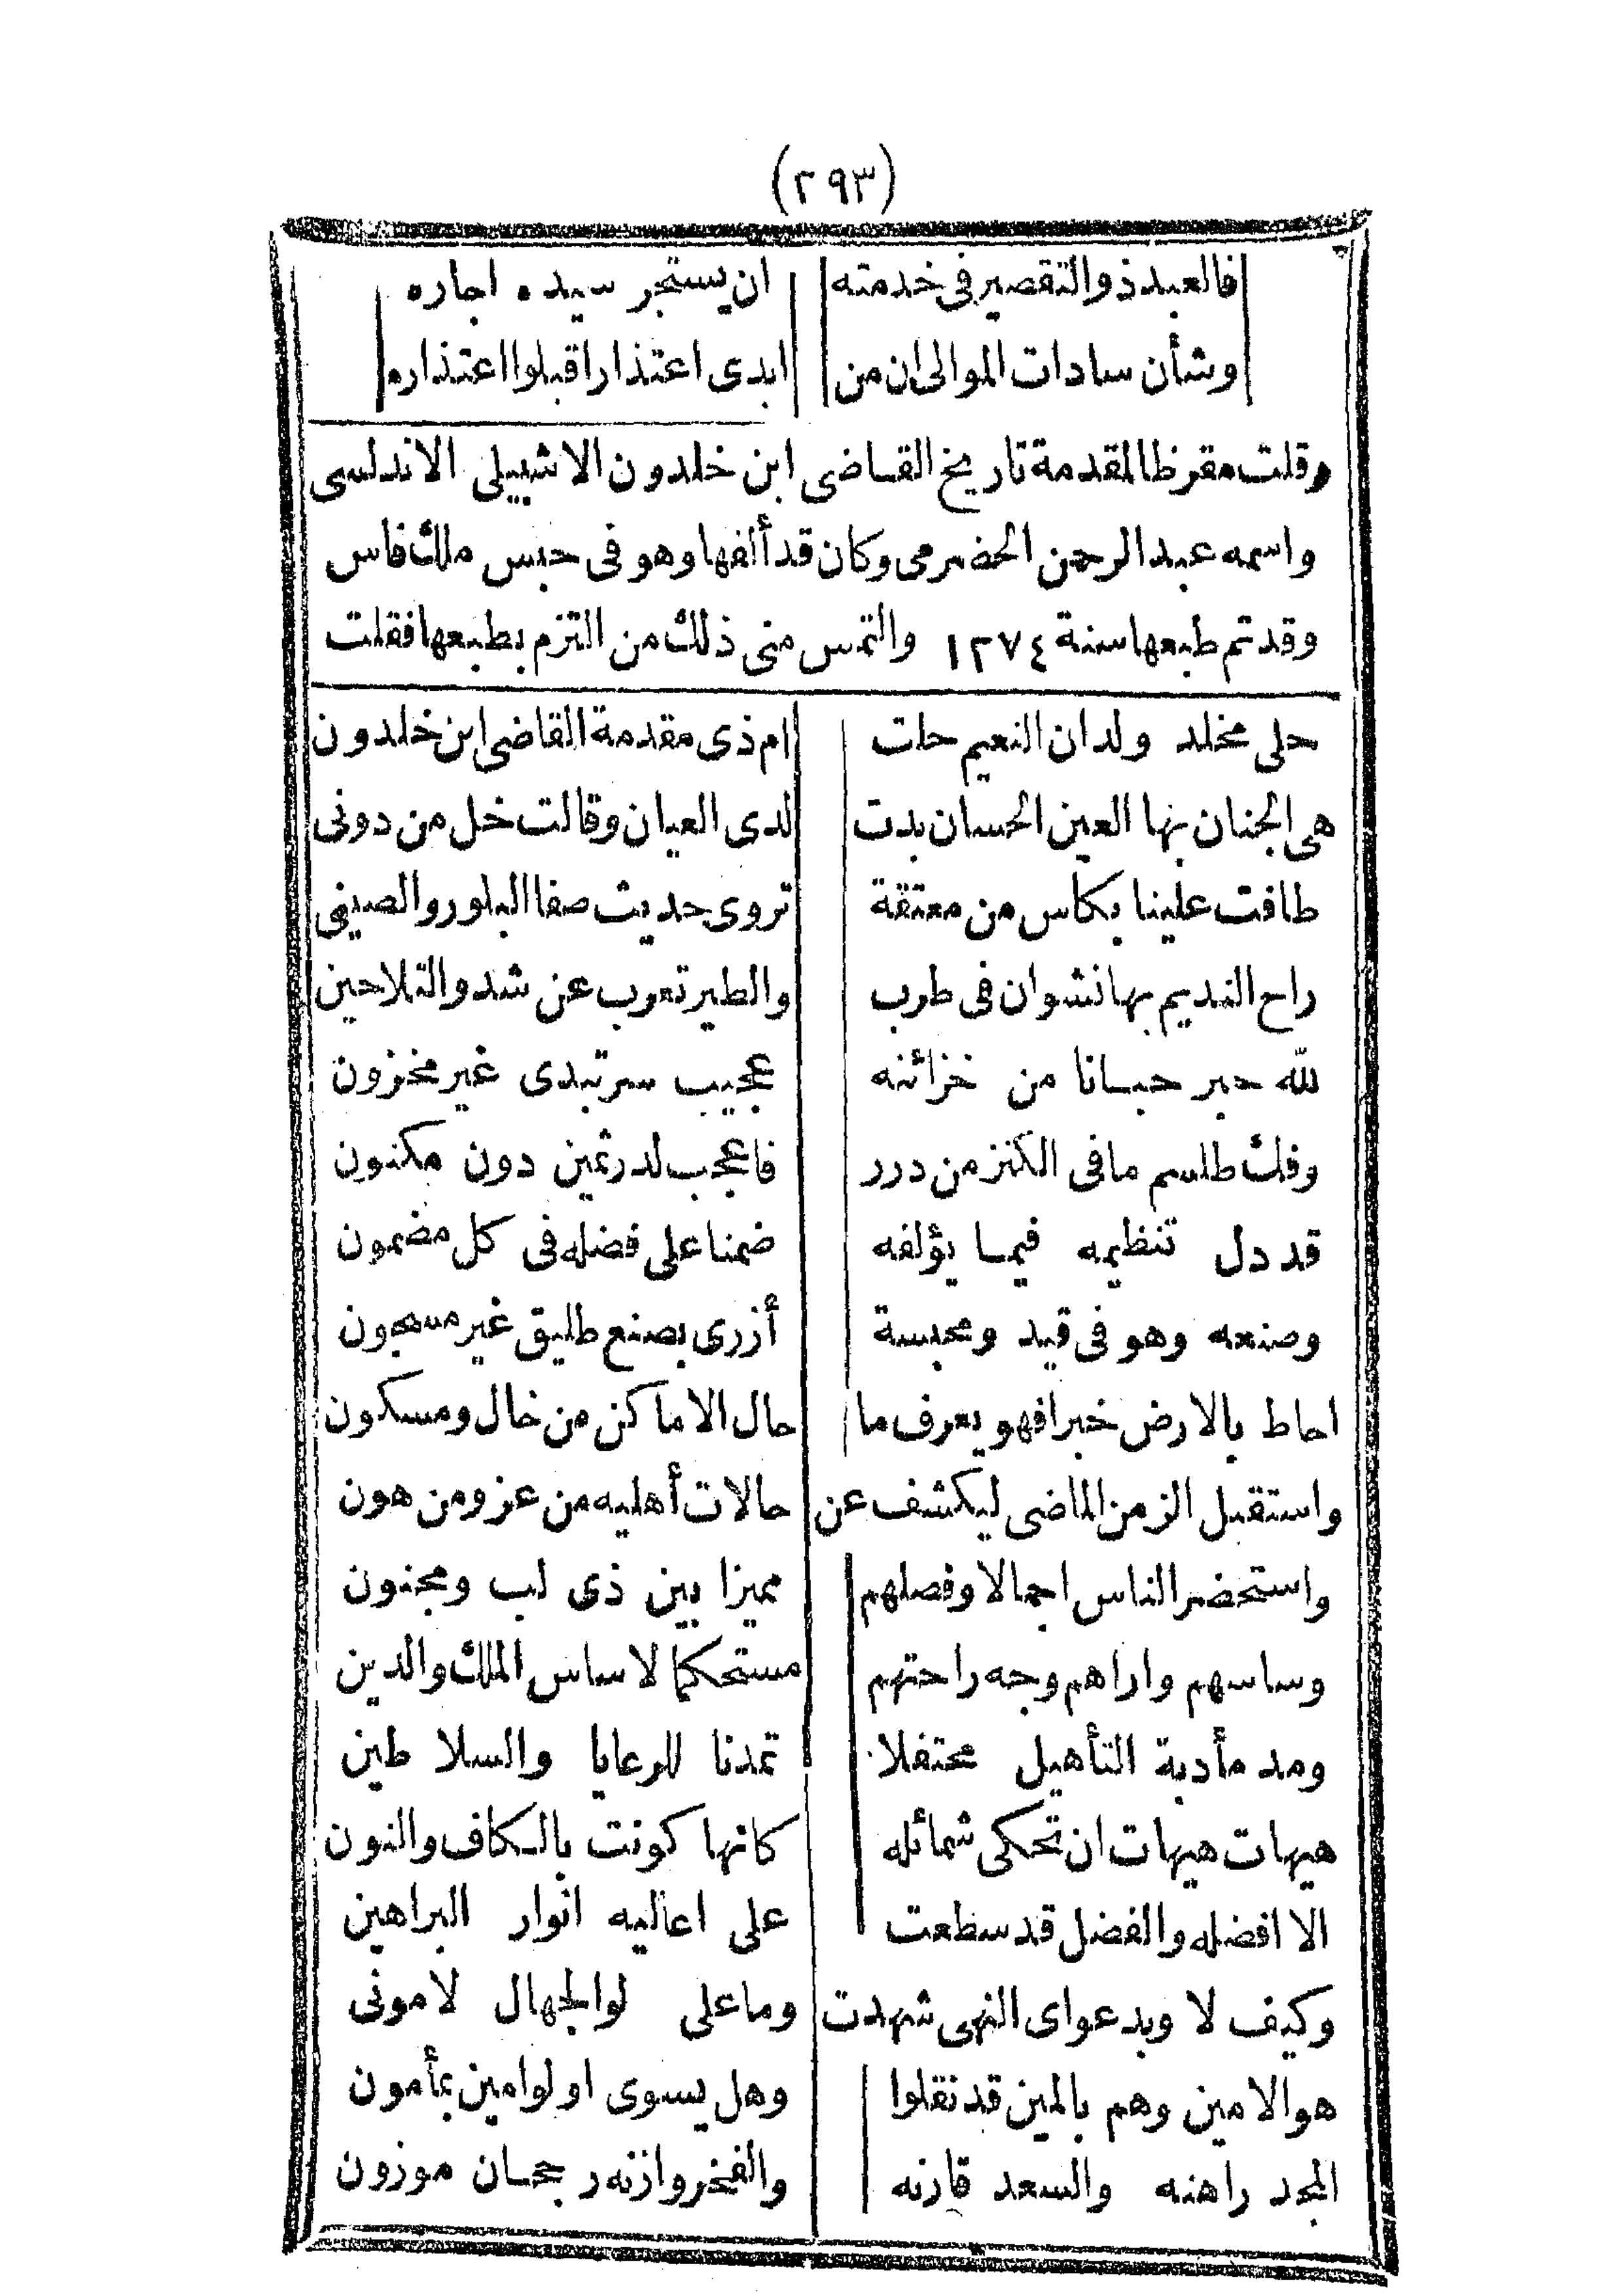 (٢٩٣)
فالعبد ذو التقصير فى خدمته ان يستجر سيده اجاره
وشأن سادات الموالى ان من ابدى اعتذارا قبلوا اعتذاره
وقلت مقرظا لمقدمة تاريخ القاضى ابن خلدون الاشبيلى الاندلسى
واسمه عبد الرحمن الحضرمى وكان قد ألفها وهو فى حبس ملك فاس
وقد تم طبعها سنة ١٢٧٤ والتمس منى ذلك من التزم بطبعها فقلت
حلى مخلد ولدان النعيم حلت ام ذى مقدمة القاضى ابن خلدون
هى الجنان بها العين الحسان بدت لدى العيان وقالت خل من دونى
طافت علينا بكأس من معتقة تروى حديث صفا البلور والصينى
راح النديم بها نشوان فى طرب والطير تعرب عن شد والتلاحين
لله حبر حبانا من خزائنه عجيب سر تبدى غير مخزون
وفك طلسم مافى الكنز من درر فاعجب لدر ثمين دون مكنون
قد دل تنظيمه فيما يؤلفه ضمنا على فضله فى كل مضمون
وصنعه وهو فى قيد ومحبسة أزرى بصنع طليق غير مسجون
احاط بالارض خبرا فهو يعرف ما حال الاماكن من خال ومسكون
واستقبل الزمن الماضى ليكشف عن حالات أهليه من عز ومن هون
واستحضر الناس اجمالا وفصلهم مميزا بين ذى لب ومجنون
وساسهم واراهم وجه راحتهم مستحكما لاساس الملك والدين
ومد مأدبة التأهيل محتفلا تمدنا للرعايا والسلاطين
هيهات هيهات ان تحكى شمائله كانها كونت بالكاف والنون
الا افضله والفضل قد سطعت على اعاليه انوار البراهين
وكيف لا وبدعواى النهى شهدت وما على لو الجهال لامونى
هو الامين وهم بالمين قد نقلوا وهل يسوى اولوا مين بمأمون
المجد راهنه والسعد قارنه والفخر وازنه رجحان موزون